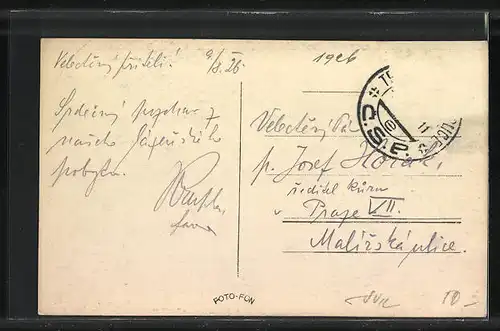 Velectěný příteli! 9/8. 26
Srdečný pozdrav z
našeho lázeňského
pobytu.
1926
Velectěný Pán
p. Josef Horák,
ředitel kůru
v Praze VII.
Malířská ulice.
Č.S.P.
FOTO-FON